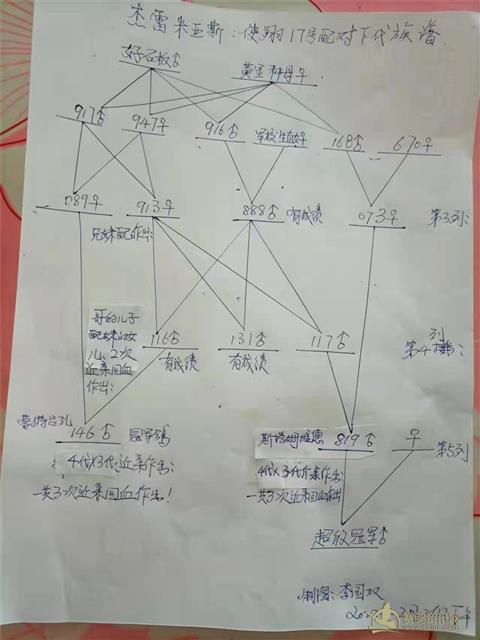 杰雷米亚斯：使翔17号配对下代族谱
好石板♂ 黄金种母♀
917♂ 947♀ 916♂ 军校生♀ 168♂ 670♀
089♀ 913♀ 888♂ 有成绩 673♀ 第3列：
兄妹配作出：
哥的儿子
配妹的女
儿、2次
近亲回血
作出：
116♂ 131♂ 117♂ 第4列：
有成绩 有成绩
蒙特吕孔 146♂ 冠军鸽
4代X3代近亲作出：
一共3次近亲回血作出！
斯塔姆维德 819♂ ♀ 第5列
4代X3代近亲作出：
一共3次近亲回血作出
超级冠军♂
制图：李国双